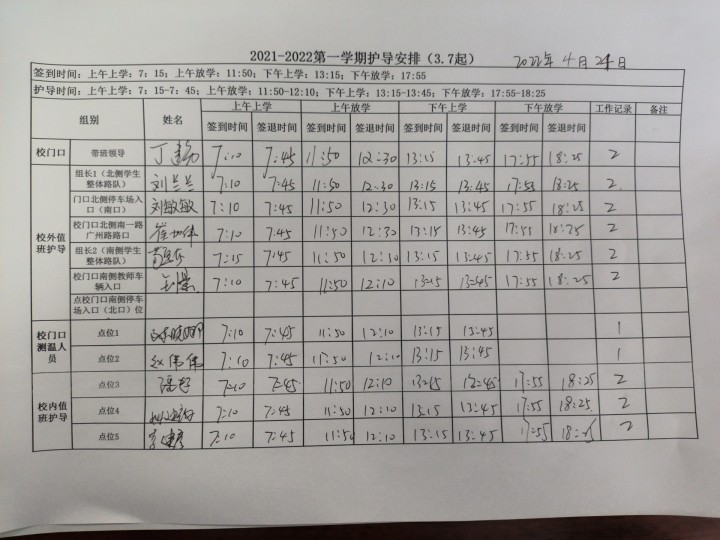 2021-2022第一学期护导安排（3.7起） 2022年4月24日
签到时间：上午上学：7：15；上午放学：11:50；下午上学：13:15；下午放学：17:55
护导时间：上午上学：7：15-7：45；上午放学：11:50-12:10；下午上学：13:15-13:45；下午放学：17:55-18:25
组别 姓名 上午上学 上午放学 下午上学 下午放学 工作记录 备注
签到时间 签退时间 签到时间 签退时间 签到时间 签退时间 签到时间 签退时间
校门口 带班领导 7:10 7:45 11:50 12:30 13:15 13:45 17:55 18:25 2
校外值班护导
组长1（北侧学生整体路队） 刘兰兰 7:10 7:45 11:50 12:30 13:15 13:45 17:55 18:25 2
门口北侧停车场入口（南口） 刘敏敏 7:10 7:45 11:50 12:30 13:15 13:45 17:55 18:25 2
校门口北侧南一路广州路路口 7:10 7:45 11:50 12:10 13:15 13:45 17:55 18:25 2
组长2（南侧学生整体路队） 7:15 7:45 11:50 12:30 13:15 13:45 17:55 18:25 2
校门口南侧教师车辆入口 7:10 7:45 11:50 12:10 13:15 13:45 17:55 18:25 2
点校门口南侧停车场入口（北口）位
校门口测温人员
点位1 7:10 7:45 11:50 12:10 13:15 13:45 1
点位2 赵伟伟 7:10 7:45 11:50 12:10 13:15 13:45 1
校内值班护导
点位3 7:10 7:45 11:50 12:10 13:15 13:45 17:55 18:25 2
点位4 7:10 7:45 11:50 12:10 13:15 13:45 17:55 18:25 2
点位5 7:10 7:45 11:50 12:10 13:15 13:45 17:55 18:25 2